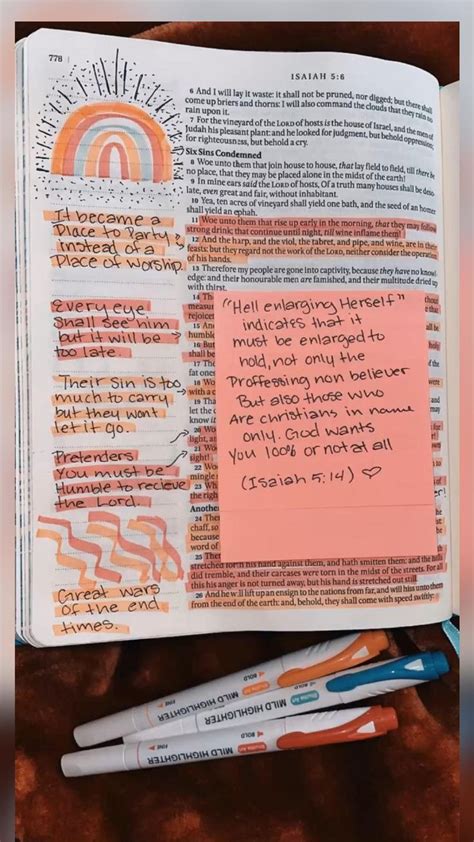 778
ISAIAH 5:6
6 And I will lay it waste: it shall not be pruned, nor digged; but there shall
come up briers and thorns: I will also command the clouds that they rain no
rain upon it.
7 For the vineyard of the LORD of hosts is the house of Israel, and the men of
Judah his pleasant plant: and he looked for judgment, but behold oppression;
for righteousness, but behold a cry.
Six Sins Condemned
8 Woe unto them that join house to house, that lay field to field, till there be
no place, that they may be placed alone in the midst of the earth!
9 In mine ears said the LORD of hosts, Of a truth many houses shall be deso
late, ever great and fair, without inhabitant.
10 Yea, ten acres of vineyard shall yield one bath, and the seed of an homer
shall yield an ephah.
11 Woe unto them that rise up early in the morning, that they may follow
strong drink; that continue until night, till wine inflame them!
12 And the harp, and the viol, the tabret, and pipe, and wine, are in their
feasts: but they regard not the work of the LORD, neither consider the operation
of his hands.
13 Therefore my people are gone into captivity, because they have no know-
edge: and their honourable men are famished, and their multitude dried up
with thirst.
It became a
Place to Party
instead of a
Place of worship.
Every eye
Shall see him
but it will be
too late.
Their Sin is too
much to carry
but they wont
let it go.
Pretenders
You must be
Humble to recieve
the Lord.
Great wars
of the end
times.
"Hell enlarging Herself"
indicates that it
must be enlarged to
hold, not only the
Proffessing non believer
But also those who
Are christians in name
only. God wants
You 100% or not at all
(Isaiah 5:14) ♡
14 The
measure
rejoice
15 An
humble
16 But
shall be
17 The
fat ones
18 Wo
with a c
19 Tha
let the c
know it
20 Wo
light, a
21 Wo
sight!
22 Wo
mingle
23 Wh
the righ
Anothe
24 The
chaff, so
because
word of
25 The
stretched forth his hand against them, and hath smitten them: and the hills
did tremble, and their carcases were torn in the midst of the streets. For all
this his anger is not turned away, but his hand is stretched out still.
26 And he will lift up an ensign to the nations from far, and will hiss unto them
from the end of the earth: and, behold, they shall come with speed swiftly:
MILD HIGHLIGHTER
FINE
BOLD
MILD HIGHLIGHTER
FINE
BOLD
MILD HIGHLIGHTER
FINE
BOLD